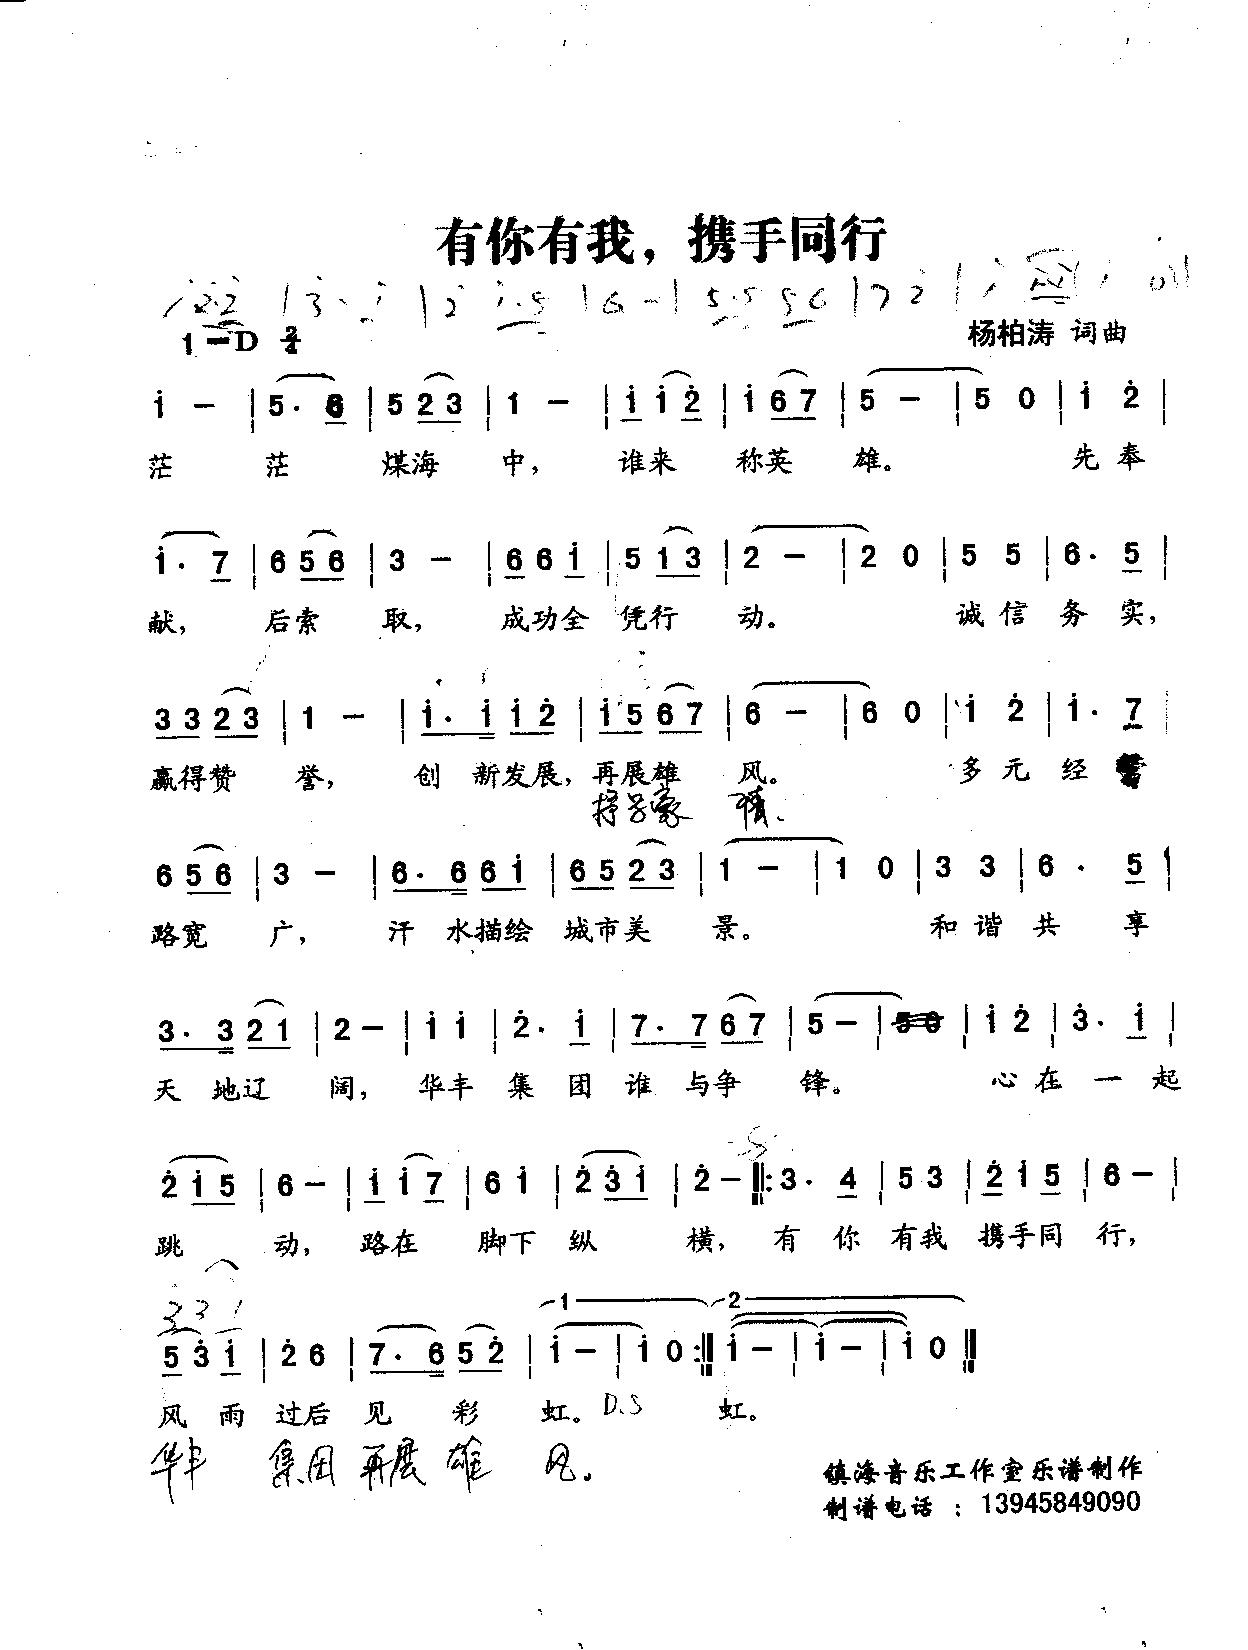 有你有我，携手同行
1=D 2/4
杨柏涛 词曲
i - | 5. 6 | 5 2 3 | 1 - | i i 2 | i 6 7 | 5 - | 5 0 | i 2 |
茫 茫 煤海 中， 谁来 称英 雄。 先奉
i. 7 | 6 5 6 | 3 - | 6 6 i | 5 1 3 | 2 - | 2 0 | 5 5 | 6. 5 |
献， 后索 取， 成功全 凭行 动。 诚信务 实，
3 3 2 3 | 1 - | i. i i 2 | i 5 6 7 | 6 - | 6 0 | i 2 | i. 7
赢得赞 誉， 创 新发展，再展雄 风。 多元经
豪 情.
6 5 6 | 3 - | 6. 6 6 i | 6 5 2 3 | 1 - | 1 0 | 3 3 | 6. 5 |
路宽 广， 汗 水描绘 城市美 景。 和谐共 享
3. 3 2 1 | 2 - | i i | 2. i | 7. 7 6 7 | 5 - | 5 0 | i 2 | 3. i |
天 地辽 阔， 华丰 集 团 谁 与争 锋。 心在 一 起
2 i 5 | 6 - | i i 7 | 6 i | 2 3 i | 2 - ‖: 3. 4 | 5 3 | 2 i 5 | 6 - |
跳 动， 路在 脚下 纵 横， 有 你 有我 携手同 行，
3 3 1
1 2
5 3 i | 2 6 | 7. 6 5 2 | i - | i 0 :‖ i - | i - | i 0 ‖
风 雨 过后 见 彩 虹。 D.S 虹。
华丰 集团 再展 雄 风。
镇海音乐工作室乐谱制作
制谱电话 ：13945849090